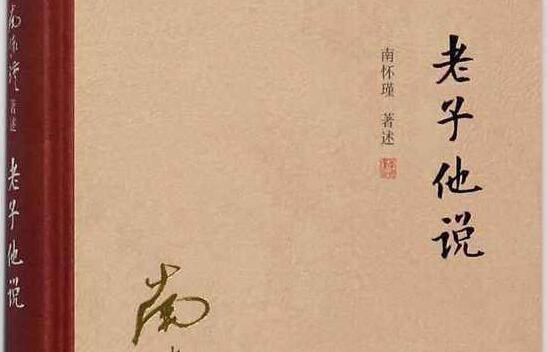 南怀瑾 著述 老子他说
老子他说
南怀瑾 著述
南